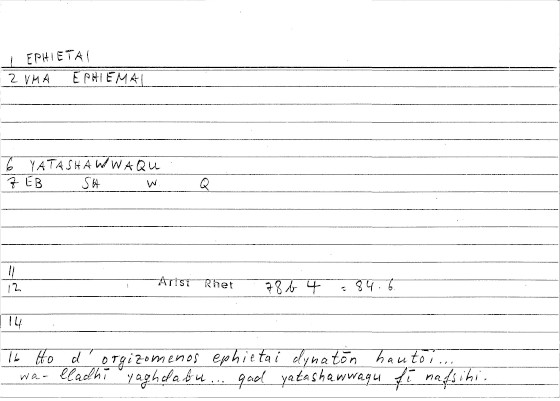 1 EPHIETAI
2 VMA EPHIEMAI
6 YATASHAWWAQU
7 EB SH W Q
11
12 Arist Rhet 78b 4 = 84.6
14
16 Ho d' orgizomenos ephietai dynatōn hautōi...
wa-lladhī yaghdabu... qad yatashawwaqu fī nafsihi.